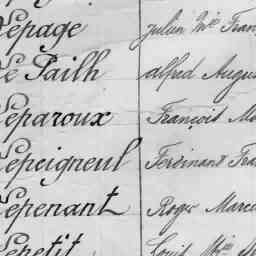 Lepage Julien Mie Fran
Le Pailh Alfred Augus
Leparoux François Ma
Lepeigneul Ferdinand Fra
Lepenant Roger Marce
Lepetit Louis